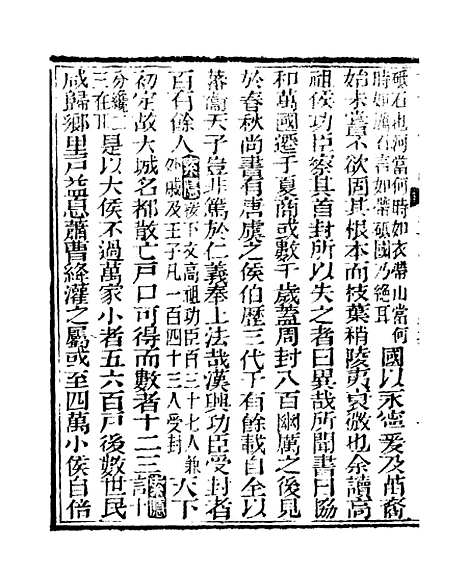 砥石也河當何時如衣帶山當何
時如厲石言如帶砥國乃絕耳
國以永寧爰及苗裔
始未嘗不欲固其根本而枝葉稍陵夷衰微也余讀高
祖侯功臣察其首封所以失之者曰異哉所聞書曰協
和萬國遷于夏商或數千歲蓋周封八百幽厲之後見
於春秋尚書有唐虞之侯伯歷三代千有餘載自全以
蕃衞天子豈非篤於仁義奉上法哉漢興功臣受封者
百有餘人索隱案下文高祖功臣百二十七人兼
外戚及王子凡一百四十三人受封
天下
初定故大城名都散亡戶口可得而數者十二三索隱言十
分纔二
三在耳
是以大侯不過萬家小者五六百戶後數世民
咸歸鄉里戶益息蕭曹絳灌之屬或至四萬小侯自倍